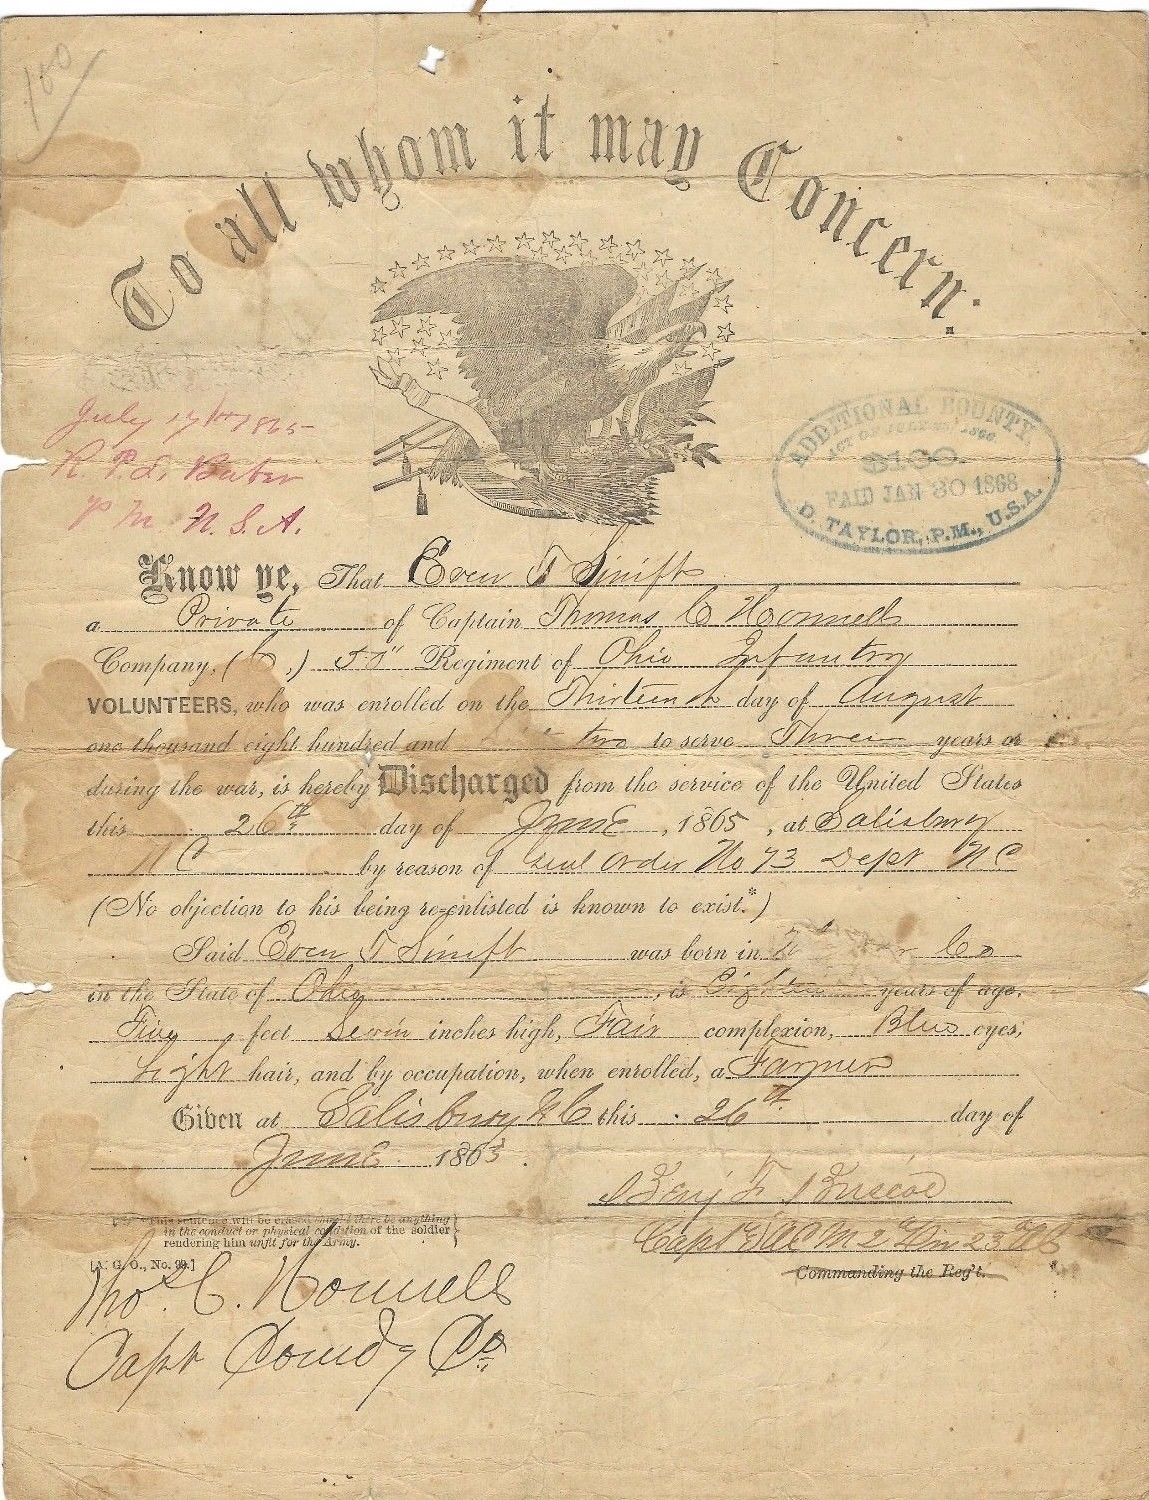 100
To all whom it may Concern:
July 17th 1865
P M U.S.A.
ADDITIONAL BOUNTY,
ACT OF JULY 28, 1866
$100.
PAID JAN 30 1868
D. TAYLOR, P.M., U.S.A.
Know ye, That Even T Sinift
a Private of Captain Thomas C Honnell
Company, (C,) Regiment of Ohio Infantry
VOLUNTEERS, who was enrolled on the Thirteenth day of August
one thousand eight hundred and two to serve Three years or
during the war, is hereby Discharged from the service of the United States
this 26th day of June, 1865, at Salisbury
N C by reason of Genl Order No 73 Dept N C
(No objection to his being re-enlisted is known to exist.*)
Said Even T Sinift was born in Co
in the State of Ohio, is Eighteen years of age,
Five feet Seven inches high, Fair complexion, Blue eyes,
Light hair, and by occupation, when enrolled, a Farmer
Given at Salisbury N C this 26th day of
June 1865.
Benj F Briscoe
Capt & A C M 2d Div 23d A C
Commanding the Reg't.
This sentence will be erased should there be anything
in the conduct or physical condition of the soldier
rendering him unfit for the Army.
[A. G. O., No. 99.]
Tho. C. Honnell
Capt Comdg Co.